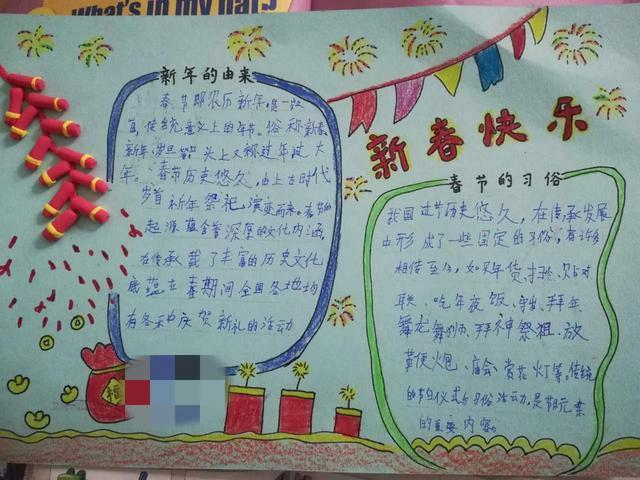 What's in my
新春快乐
新年的由来
春节即农历新年,是一
传统意义上的年节。俗称新春
新年 头上又称过年过大
年。春节历史悠久,由上古时代
岁首祈年祭祀演变而来。春节的
起源蕴含着深厚的文化内涵
在传承载了丰富的历史文化
底蕴在春期间全国各地均
有各 庆贺新 的活动
春节的习俗
我国过节历史悠久,在传承发展
中形成了一些固定的习俗,有许多
相传至今,如买年货、扫 、贴对
联、吃年夜饭、守岁、拜年
舞龙舞狮、拜神祭祖、放
鞭炮、庙会、赏花灯等。传统
的节日仪式与习俗活动,是节元素
的重要内容。
福